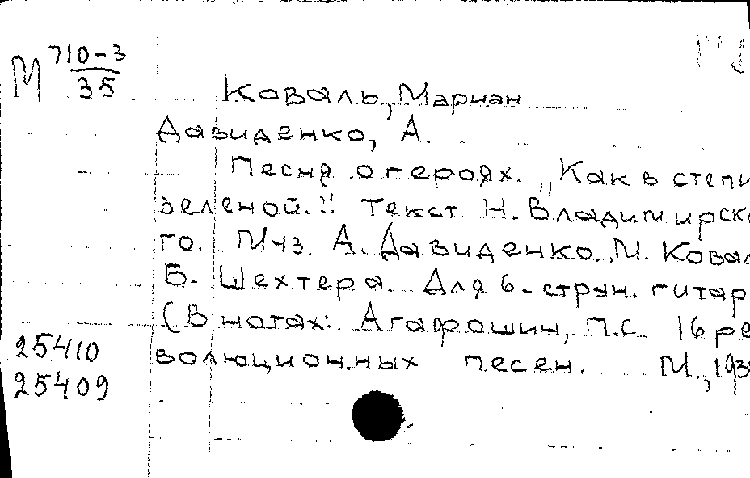 М 710-3
35
Коваль, Мариан
Давиденко, А.
Песня о героях. „Как в степи
зеленой.." Текст Н. Владимирско
го. Муз. А. Давиденко, М. Ковал
Б. Шехтера. Для 6-струн. гитар
(В нотах: Агафошин, П.С. 16 ре
25410
волюционных песен. М., 193
25409